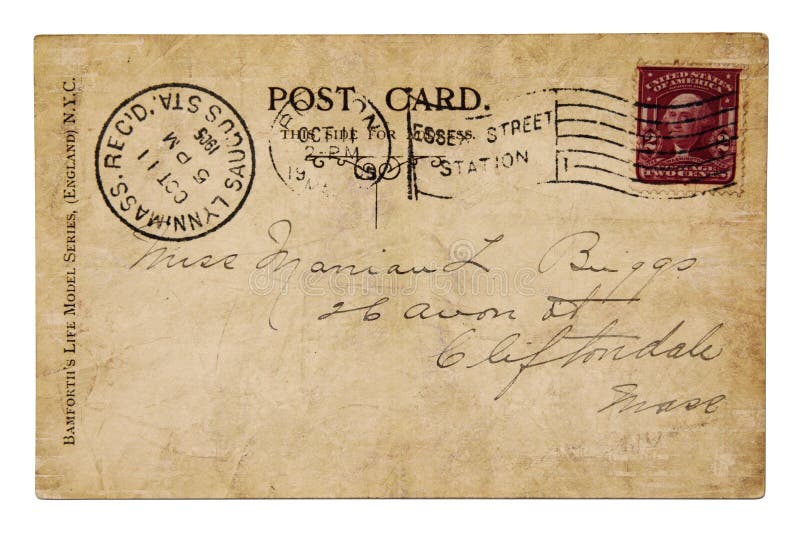 BAMFORTH'S LIFE MODEL SERIES, (ENGLAND) N.Y.C.
LYNN MASS. REC'D.
SAUGUS STA.
OCT 11
5 PM
1905
POST CARD.
THIS SIDE FOR ADDRESS.
BOSTON
OCT 11
2-PM
19 05
MASS
ESSEX STREET
STATION
UNITED STATES OF AMERICA
2 2
POSTAGE
TWO CENTS
Miss Marian L Briggs
26 Avon St
Cliftondale
Mass
dreamstime